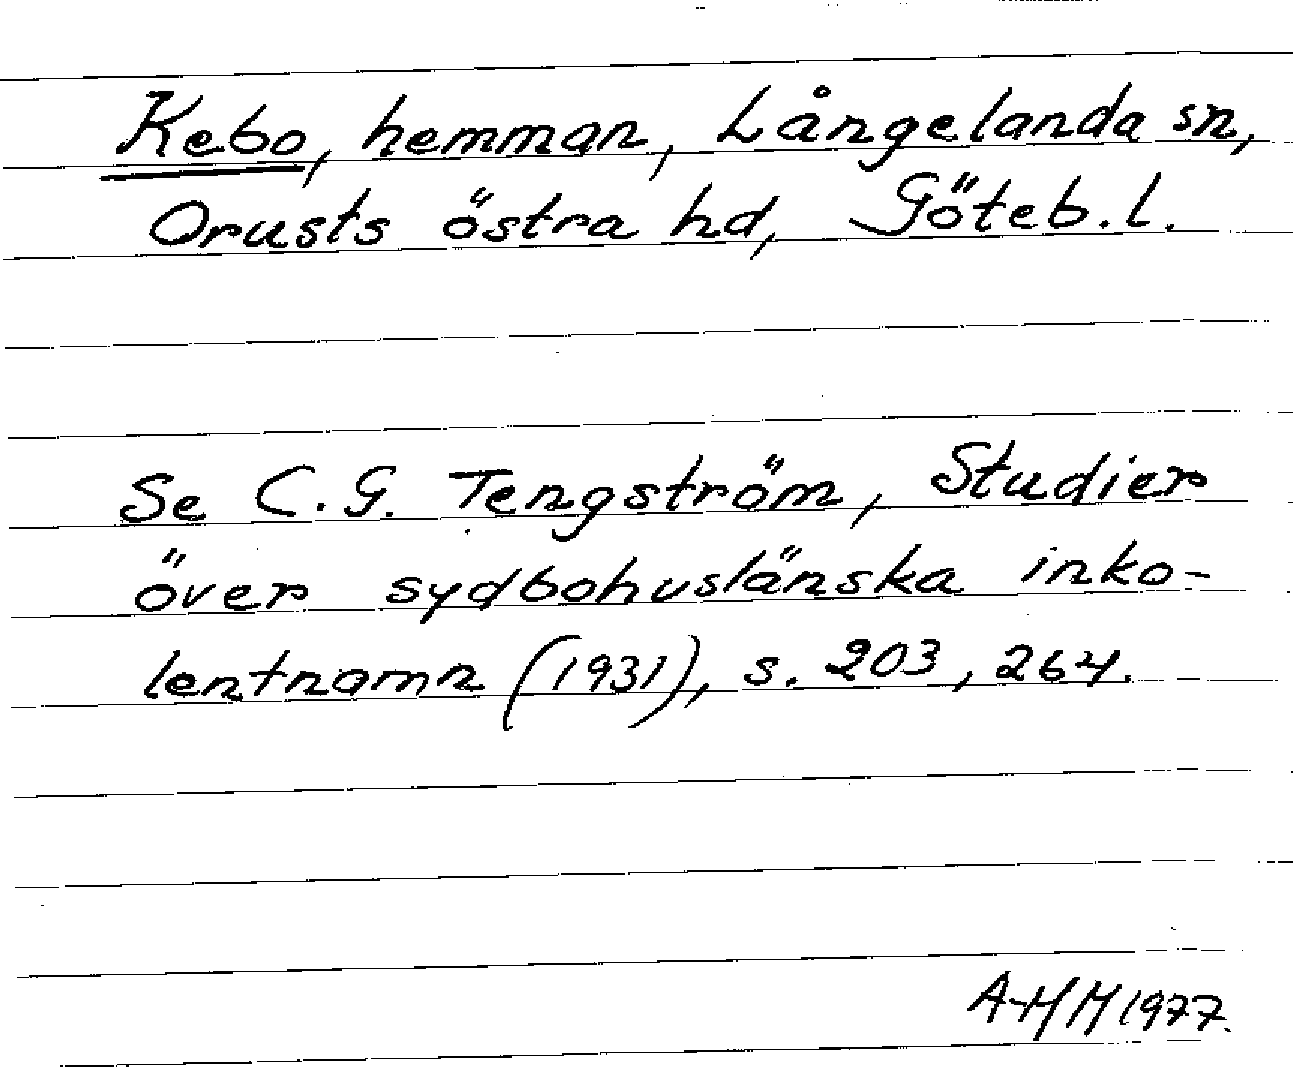 Kebo, hemman, Långelanda sn,
Orusts östra hd, Göteb. l.
Se C. G. Tengström, Studier
över sydbohuslänska inko-
lentnamn (1931), s. 203, 264.
A-HM 1977.